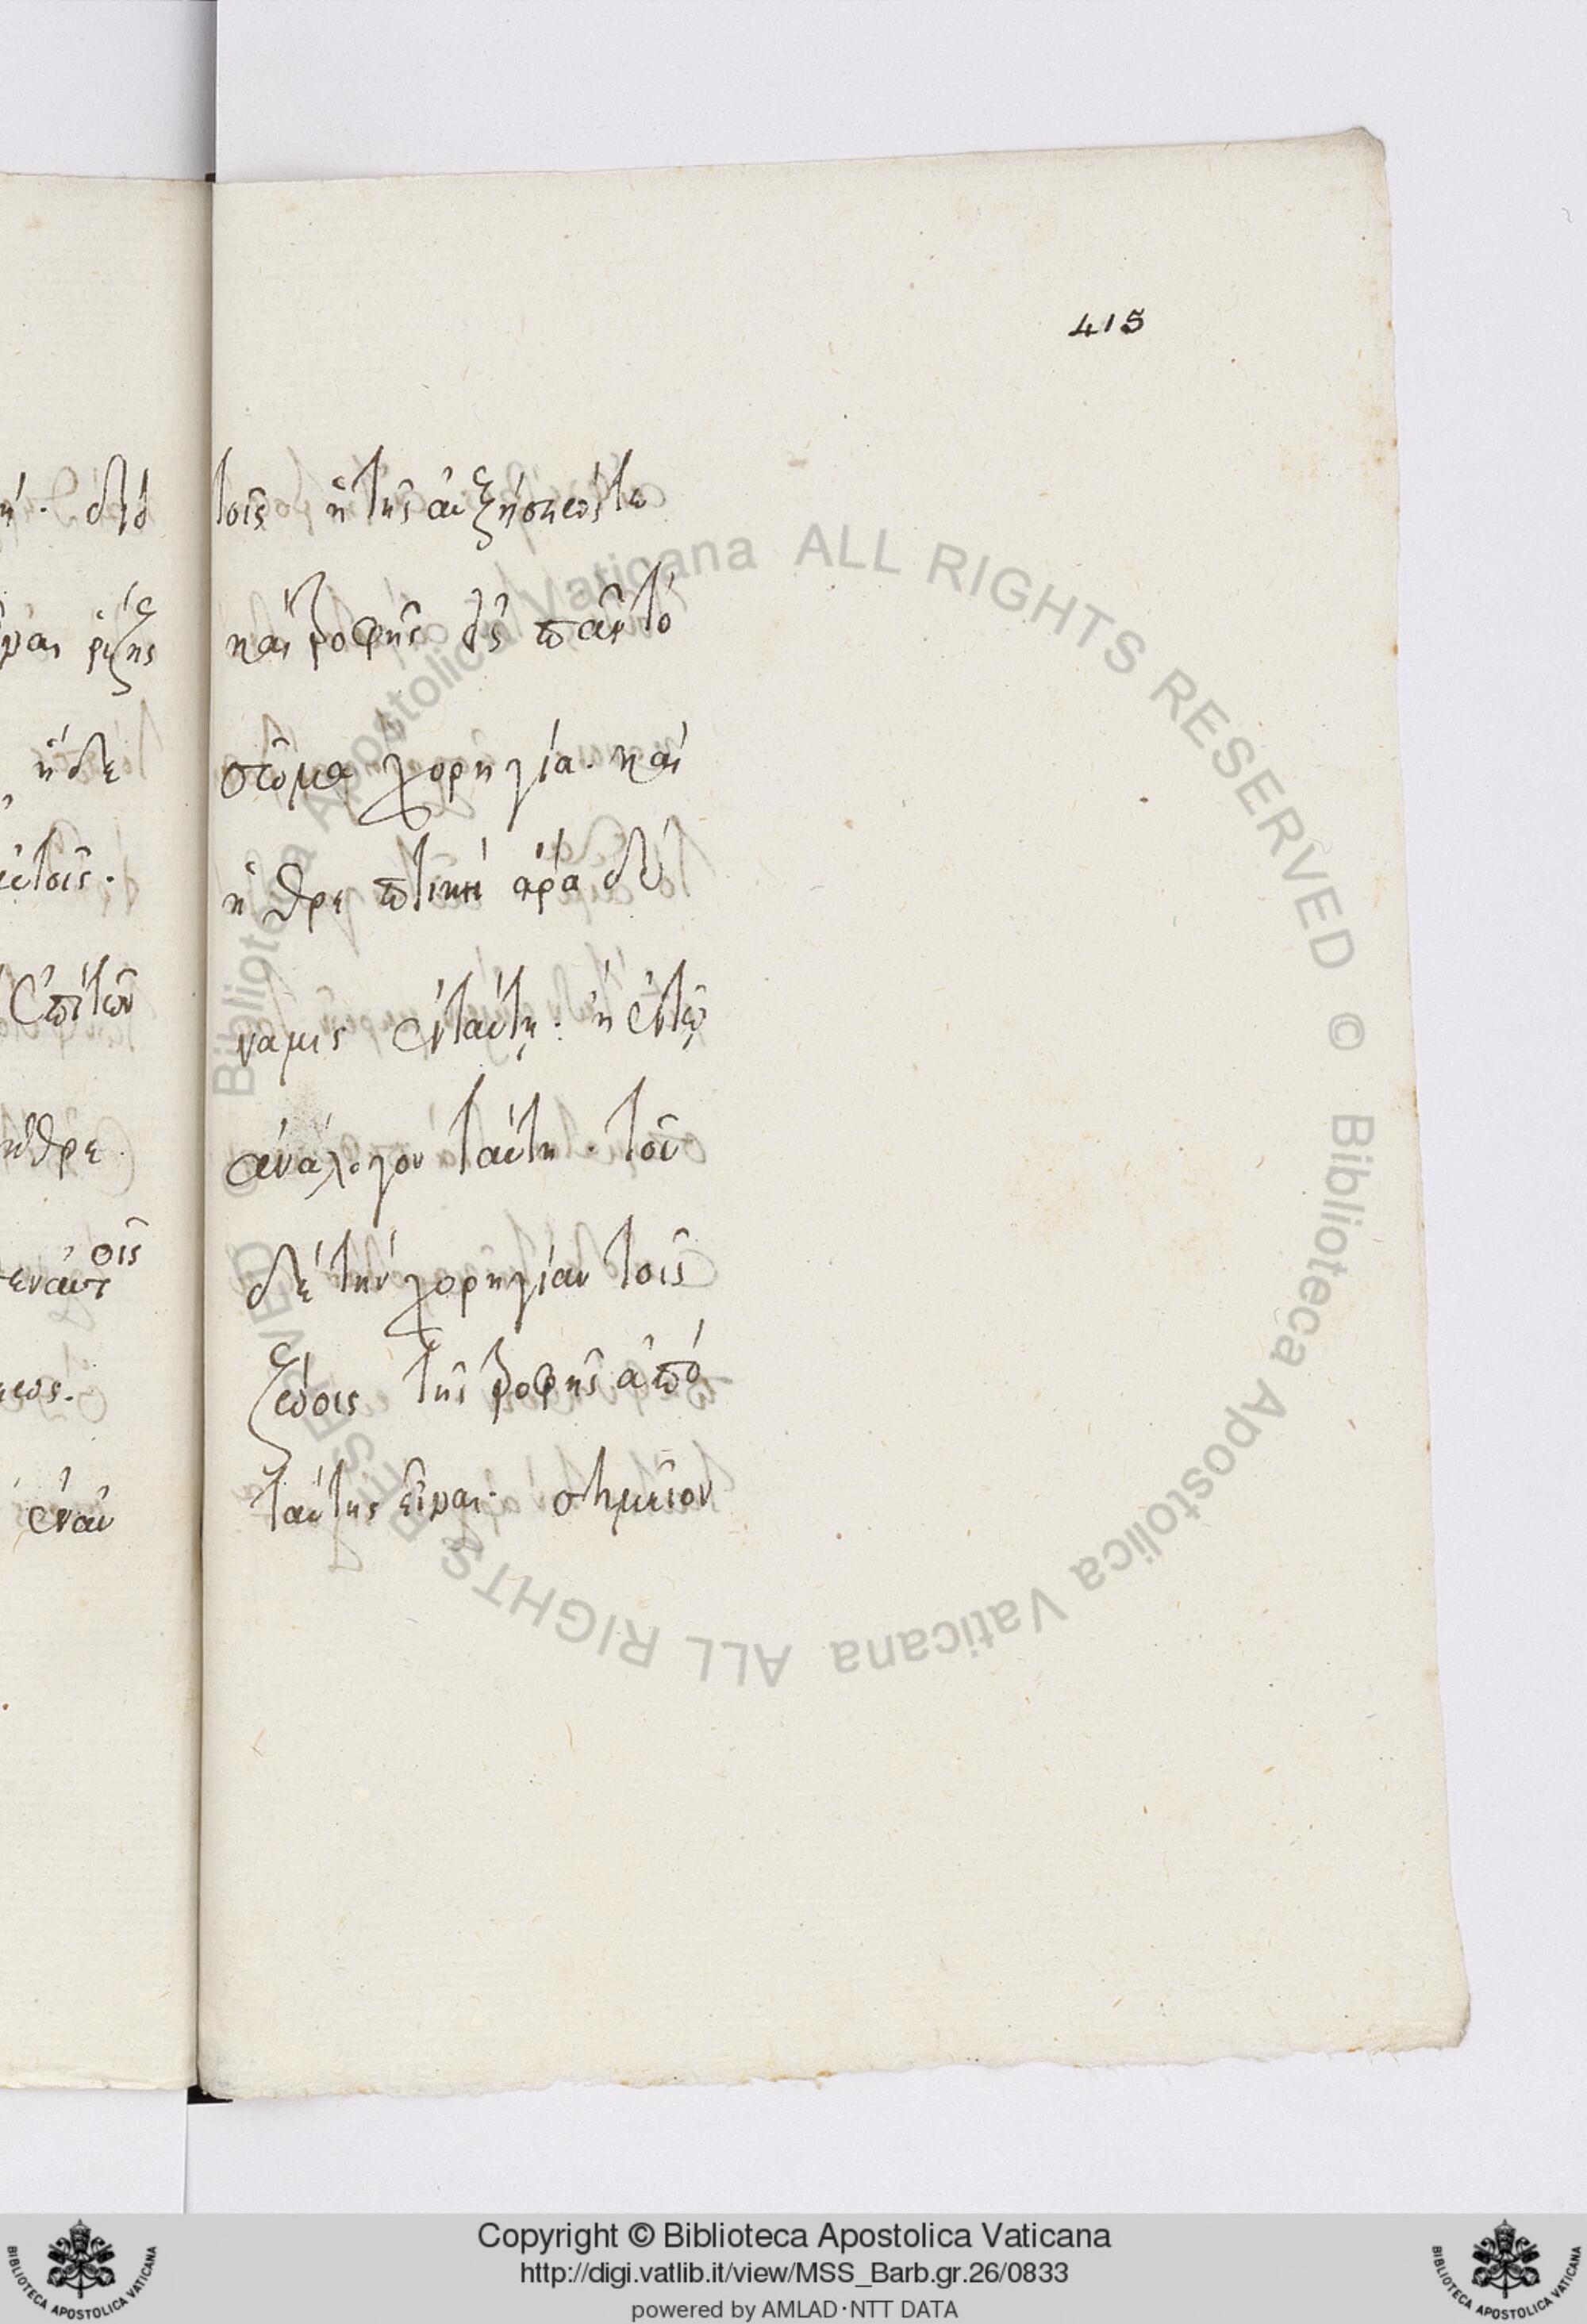 415
ή. διό
ναι ρίζης
ἡ δὲ
Ἐπὶ τῶν
ἡ θρε
οις
τοῖς ἡ τῆς αὐξήσεώς τε
καὶ τροφῆς εἰς πᾶν τὸ
σῶμα χορηγία. καὶ
ἡ θρεπτικὴ ἄρα δύ
ναμις ἐν ταύτῃ. ἢ ἐν τῷ
ἀνάλογον ταύτη. τοῦ
δὲ τὴν χορηγίαν τοῖς
ζώοις τῆς τροφῆς ἀπὸ
ταύτης εἶναι. σημεῖον
© Biblioteca Apostolica Vaticana ALL RIGHTS RESERVED © Biblioteca Apostolica Vaticana ALL RIGHTS RESERVED
Copyright © Biblioteca Apostolica Vaticana
http://digi.vatlib.it/view/MSS_Barb.gr.26/0833
powered by AMLAD·NTT DATA
BIBLIOTECA APOSTOLICA VATICANA
BIBLIOTECA APOSTOLICA VATICANA